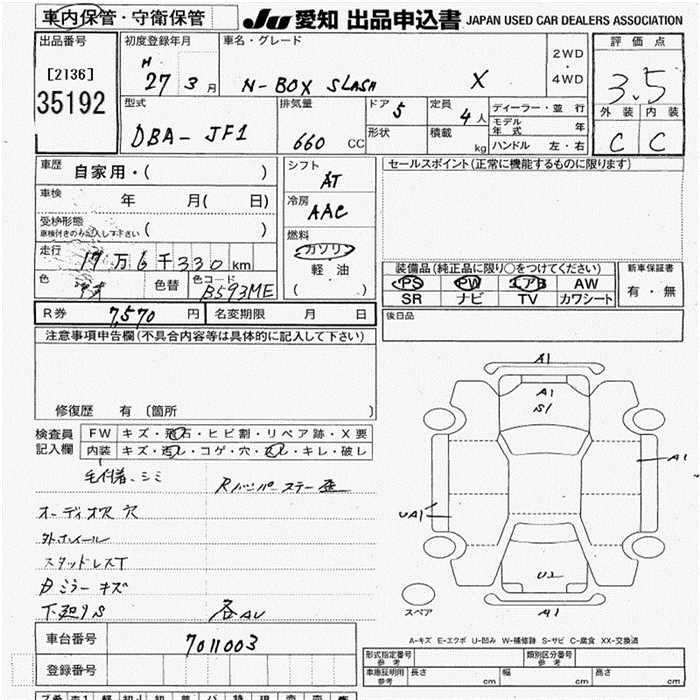 車内保管・守衛保管 JU 愛知 出品申込書 JAPAN USED CAR DEALERS ASSOCIATION
出品番号 初度登録年月 車名・グレード 2WD ・ 4WD 評価点
[2136] H 27 3月 N-BOX SLASH X 3.5
35192 型式 排気量 ドア 5 定員 4人 ディーラー・並行 外装 内装
DBA-JF1 660 CC 形状 積載 kg モデル年式 年 C C
ハンドル 左・右
車歴 自家用・( ) シフト AT セールスポイント(正常に機能するものに限ります)
車検 年 月( 日) 冷房 AAC
受検形態 ( )
車検付きのみ記入して下さい
走行 17万6千330km 燃料 ガソリン
軽油
( )
色 色替 色コード B593ME
装備品(純正品に限り○をつけてください) 新車保証書
PS PW エアB AW 有・無
SR ナビ TV カワシート
R券 7,570円 名変期限 月 日 後日品
注意事項申告欄(不具合内容等は具体的に記入して下さい)
修復歴 有 〔箇所 〕
検査員記入欄 FW キズ・飛石・ヒビ割・リペア跡・X要
内装 キズ・汚レ・コゲ・穴・スレ・キレ・破レ
毛付着、シミ Rバンパーステー歪
オーディオ穴 穴
外ホイール
スタッドレスT
Dミラーキズ
下廻りS 各AU
A1
A1
S1
A1
UA1
U2
スペア A1
A-キズ E-エクボ U-凹み W-補修跡 S-サビ C-腐食 XX-交換済
車台番号 7011003
登録番号
形式指定番号 参考 類別区分番号 参考
車庫証明用 参考 長さ cm 幅 cm 高さ cm